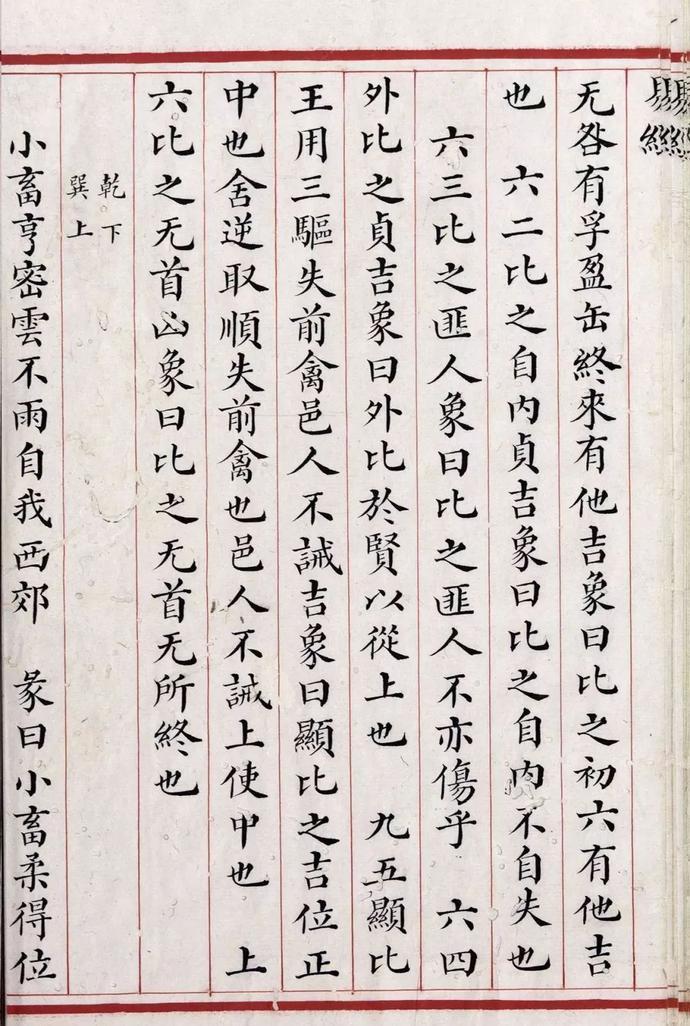 易經
无咎有孚盈缶終來有他吉象曰比之初六有他吉
也 六二比之自內貞吉象曰比之自內不自失也
六三比之匪人象曰比之匪人不亦傷乎 六四
外比之貞吉象曰外比於賢以從上也 九五顯比
王用三驅失前禽邑人不誡吉象曰顯比之吉位正
中也舍逆取順失前禽也邑人不誡上使中也 上
六比之无首凶象曰比之无首无所終也
乾下
巽上
小畜亨密雲不雨自我西郊 彖曰小畜柔得位